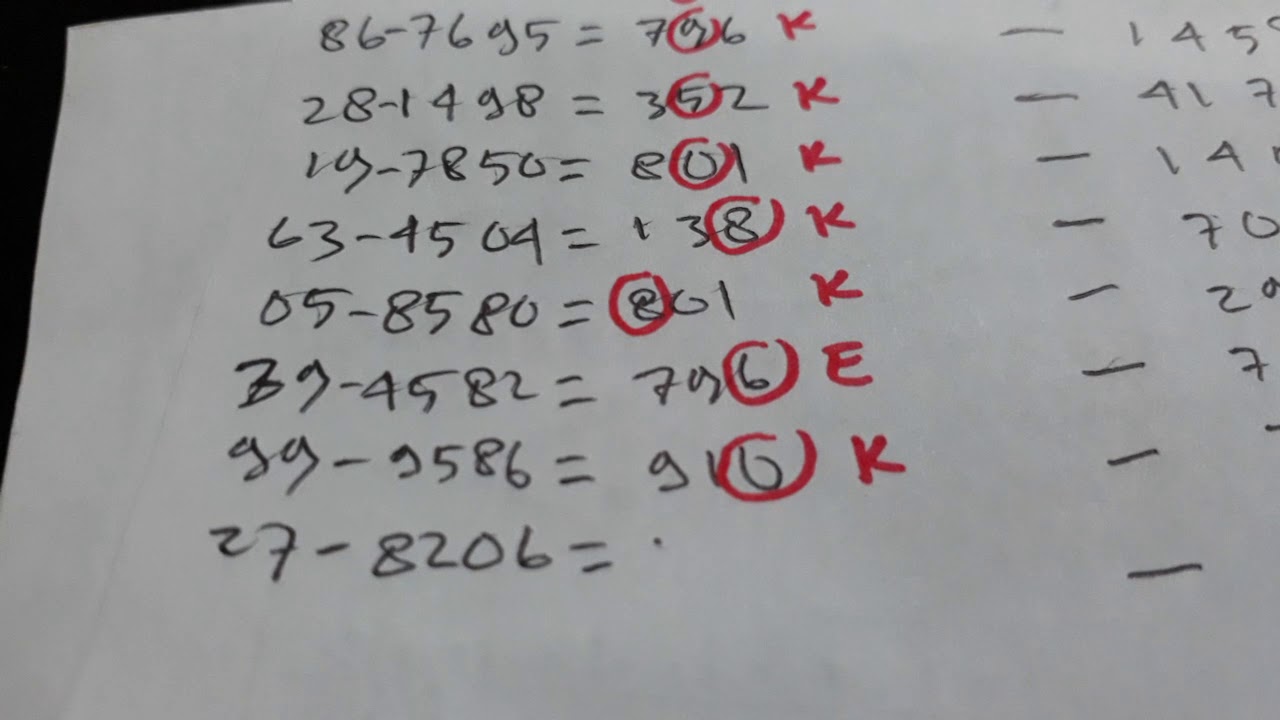 86-7695 = 796 K — 145
28-1498 = 352 K — 417
19-7850 = 801 K — 141
63-4504 = 138 K — 70
05-8580 = 801 K — 29
39-4582 = 796 E — 7
99-9586 = 916 K —
27-8206 = . —